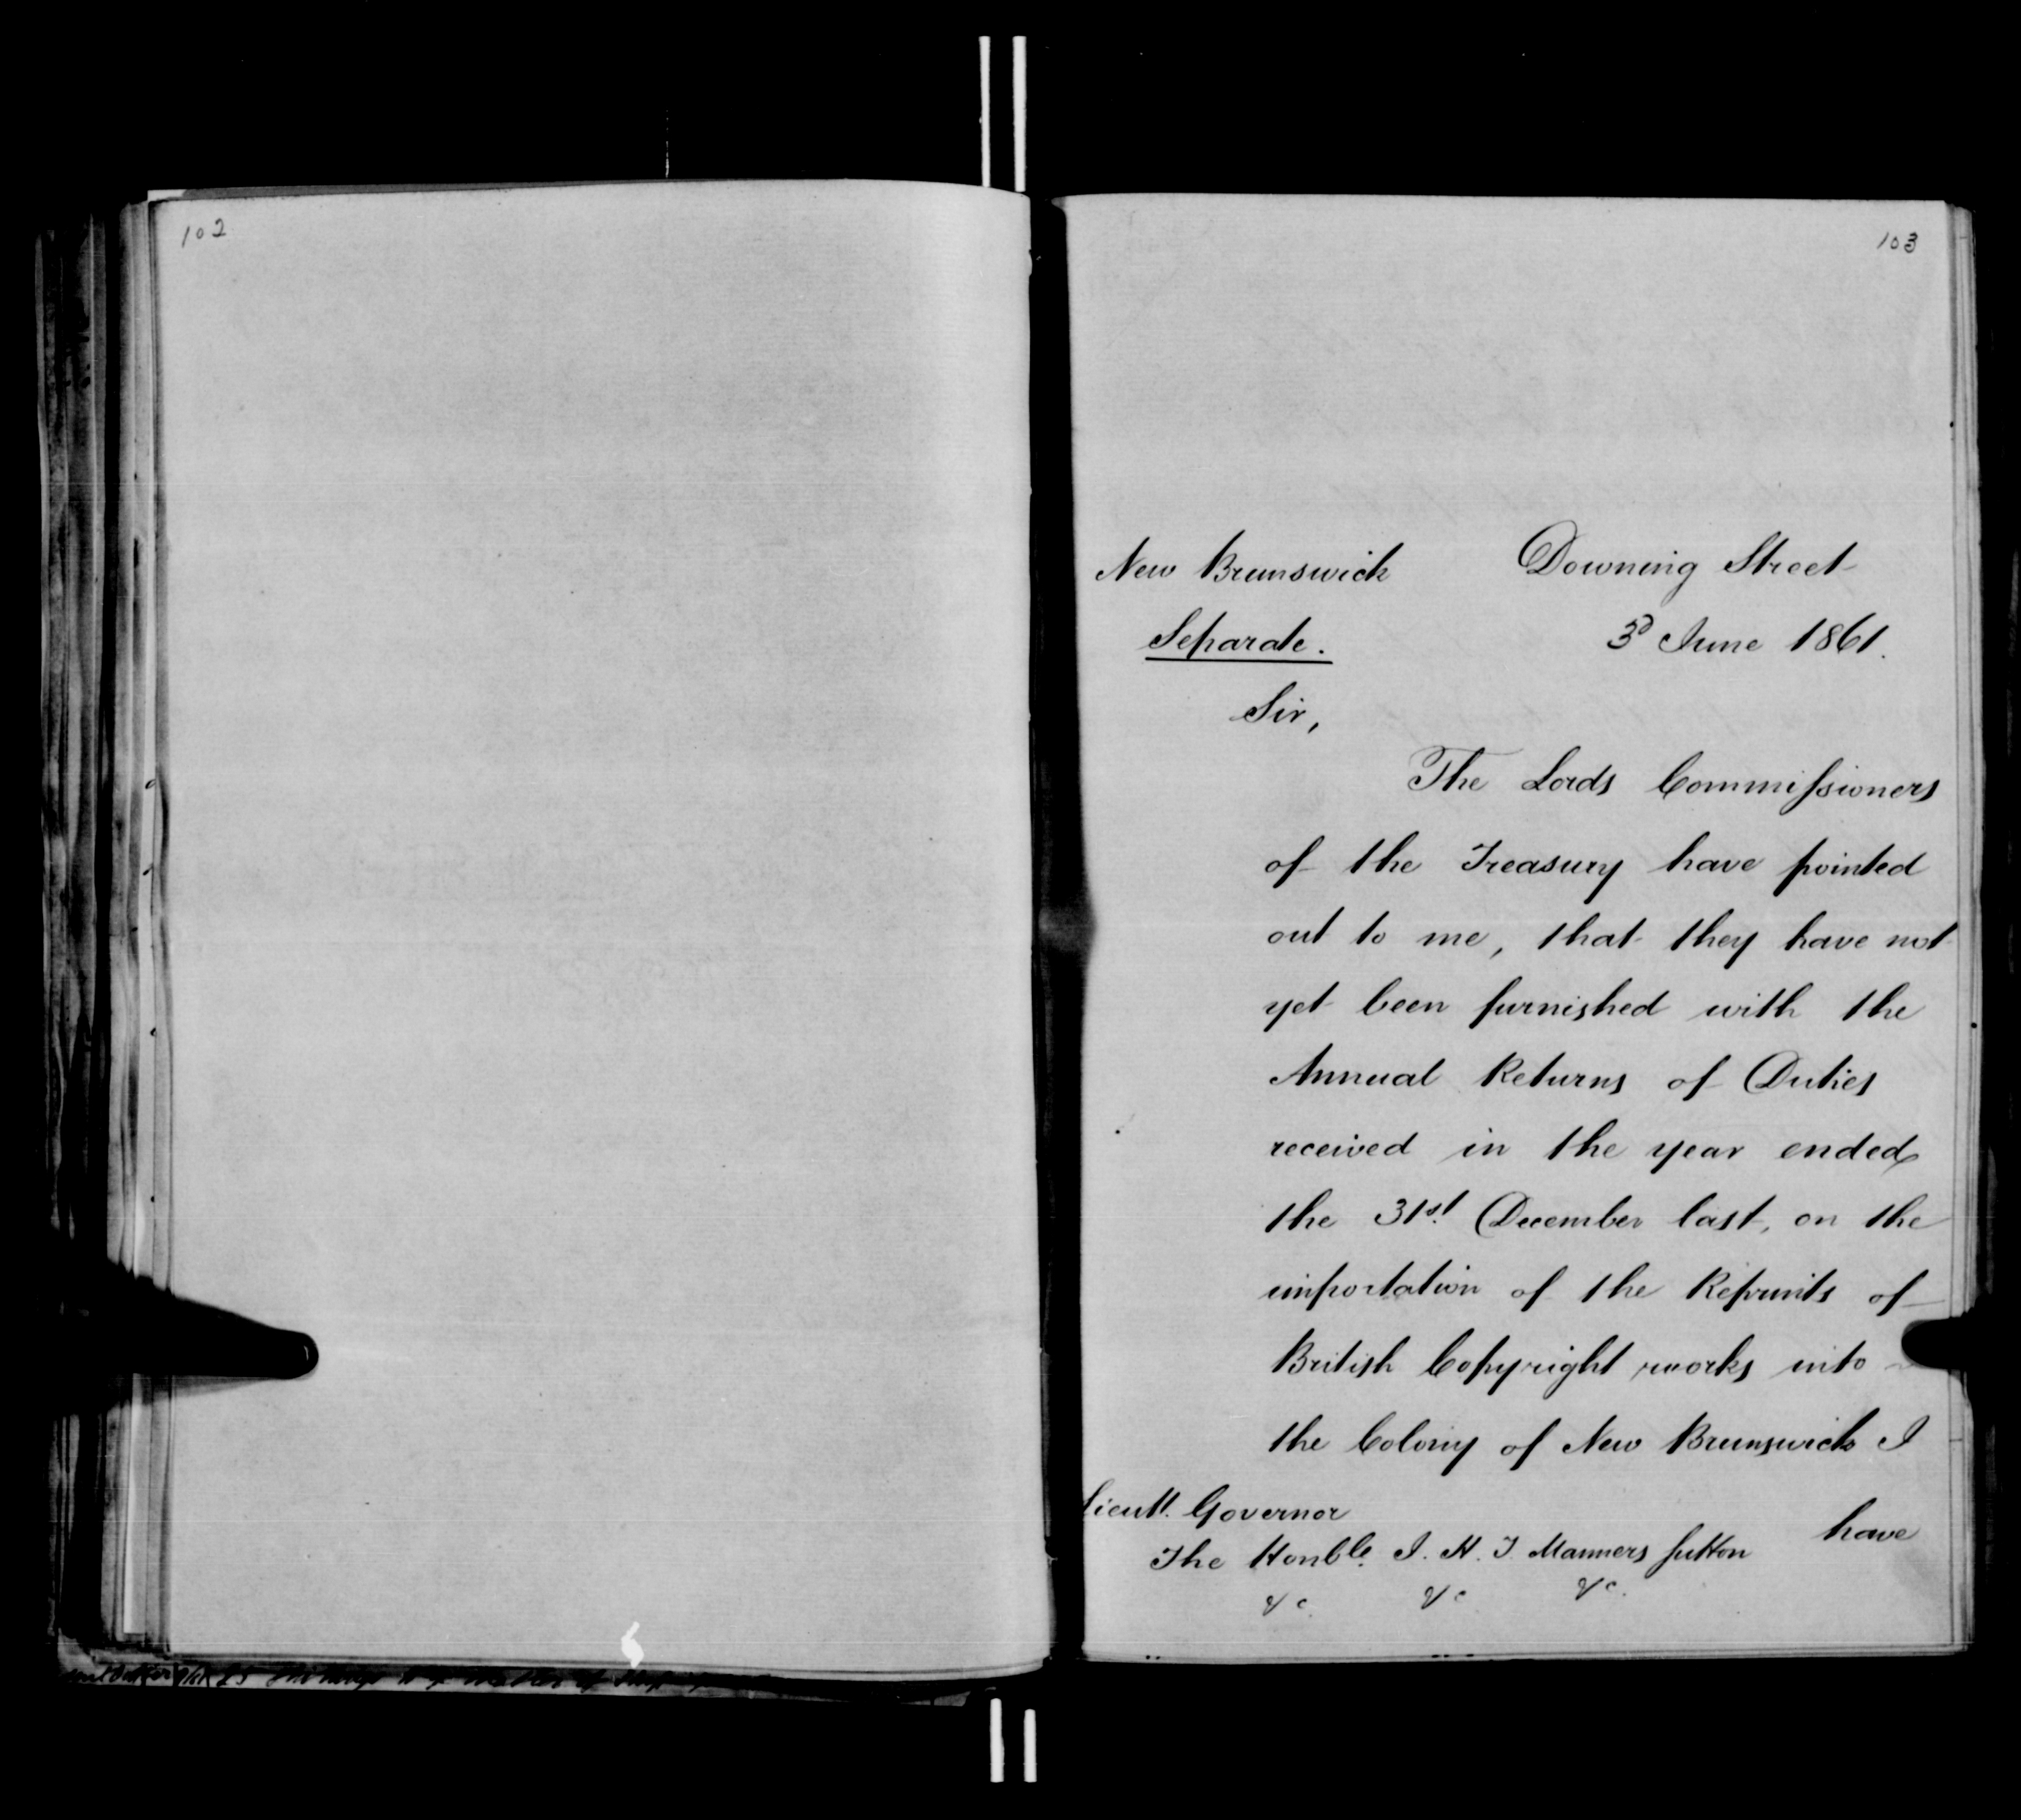 102
103
New Brunswick
Downing Street
Separate.
3d June 1861.
Sir,
The Lords Commissioners
of the Treasury have pointed
out to me, that they have not
yet been furnished with the
Annual Returns of Duties
received in the year ended
the 31st. December last, on the
importation of the Reprints of
British Copyright works into
the Colony of New Brunswick I
have
Lieutt. Governor
The Honble. J. H. T. Manners Sutton
&c. &c &c.